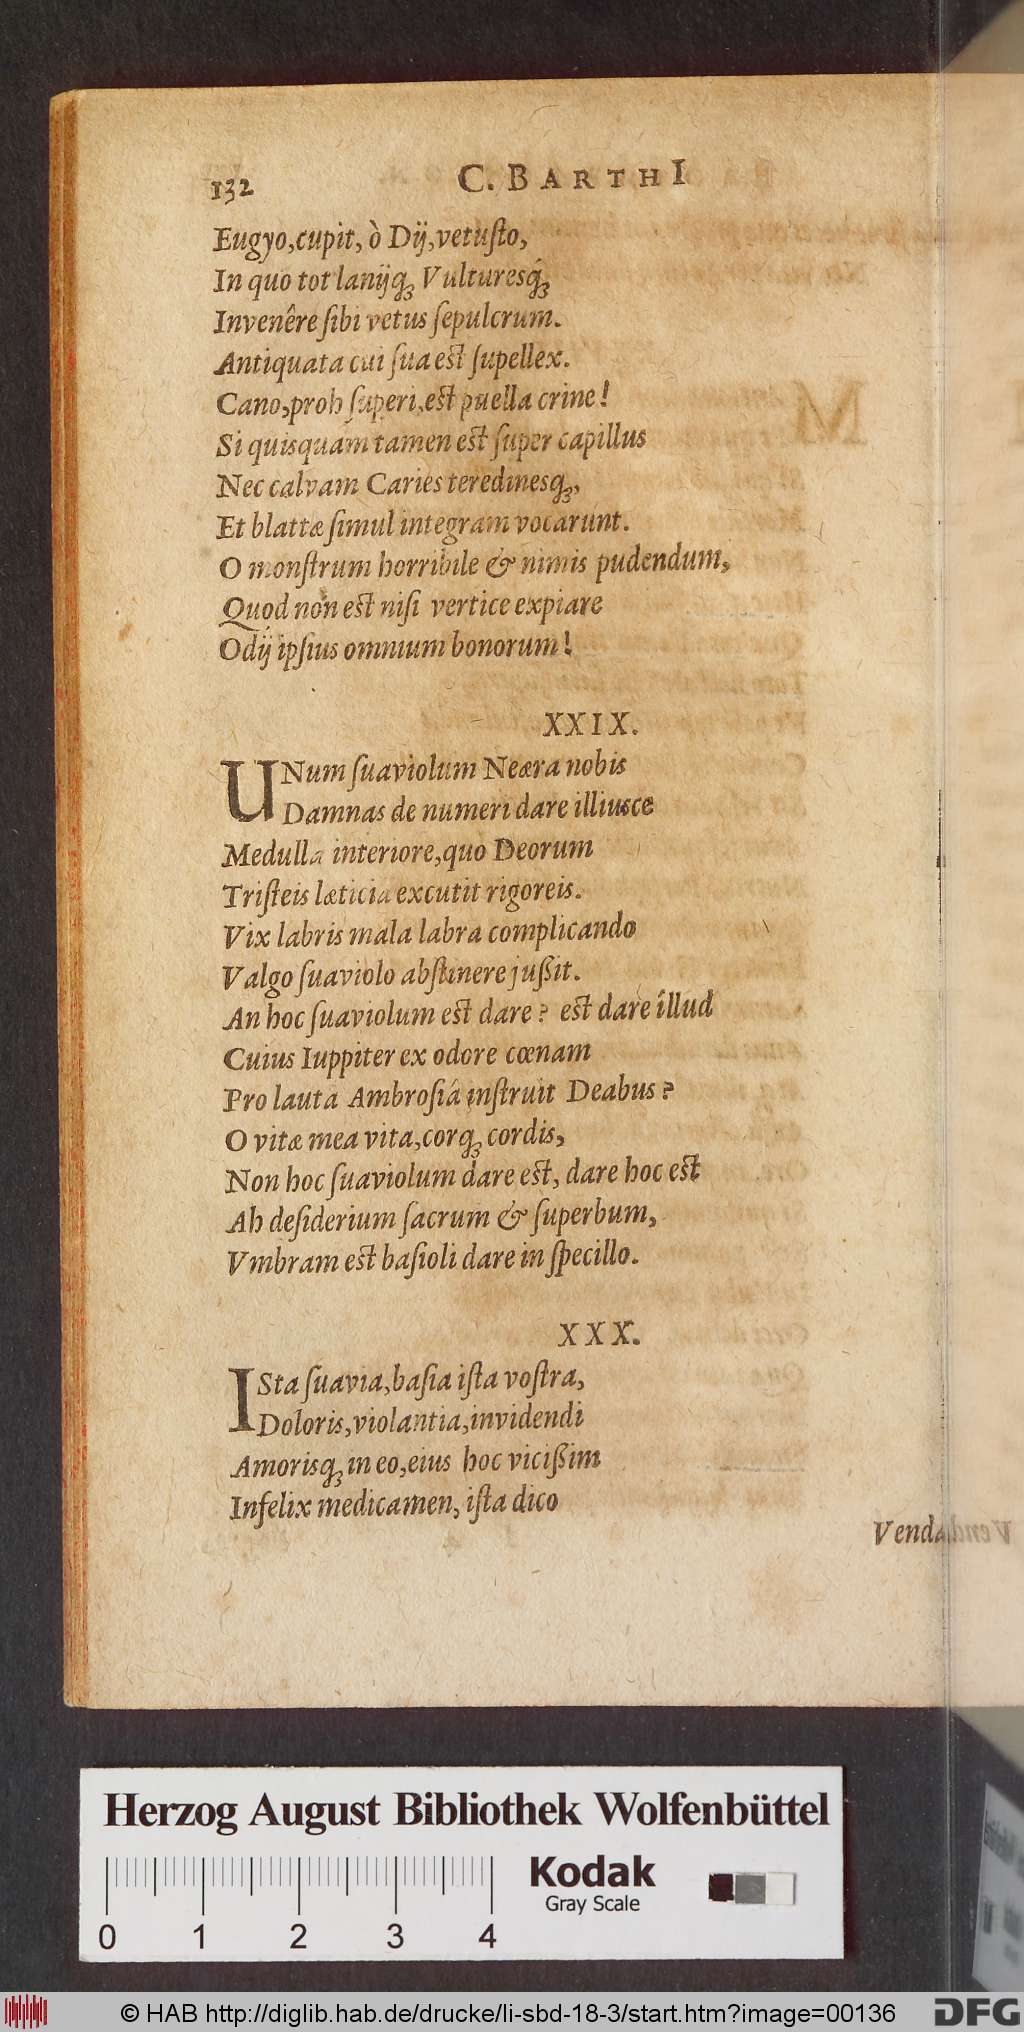 132 C. BARTHI
Eugyo, cupit, ò Dij, vetuſto,
In quo tot lanijq́; Vulturesq́;
Invenêre ſibi vetus ſepulcrum.
Antiquata cui ſua eſt ſupellex.
Cano, proh ſuperi, eſt puella crine!
Si quisquam tamen eſt ſuper capillus
Nec calvam Caries teredinesq;,
Et blattæ ſimul integram vocarunt.
O monſtrum horribile & nimis pudendum,
Quod non eſt niſi vertice expiare
Odij ipſius omnium bonorum!
XXIX.
UNum ſuaviolum Neæra nobis
Damnas de numeri dare illiusce
Medulla interiore, quo Deorum
Triſteis læticia excutit rigoreis.
Vix labris mala labra complicando
Valgo ſuaviolo abſtinere juſsit.
An hoc ſuaviolum eſt dare? eſt dare illud
Cuius Iuppiter ex odore cœnam
Pro lauta Ambroſiâ inſtruit Deabus?
O vitæ mea vita, corq; cordis,
Non hoc ſuaviolum dare eſt, dare hoc eſt
Ah deſiderium ſacrum & ſuperbum,
Vmbram eſt baſioli dare in ſpecillo.
XXX.
ISta ſuavia, baſia iſta voſtra,
Doloris, violantia, invidendi
Amorisq; in eo, eius hoc viciſsim
Infelix medicamen, iſta dico
Venda
Herzog August Bibliothek Wolfenbüttel
Kodak
Gray Scale
0 1 2 3 4
© HAB http://diglib.hab.de/drucke/li-sbd-18-3/start.htm?image=00136
DFG